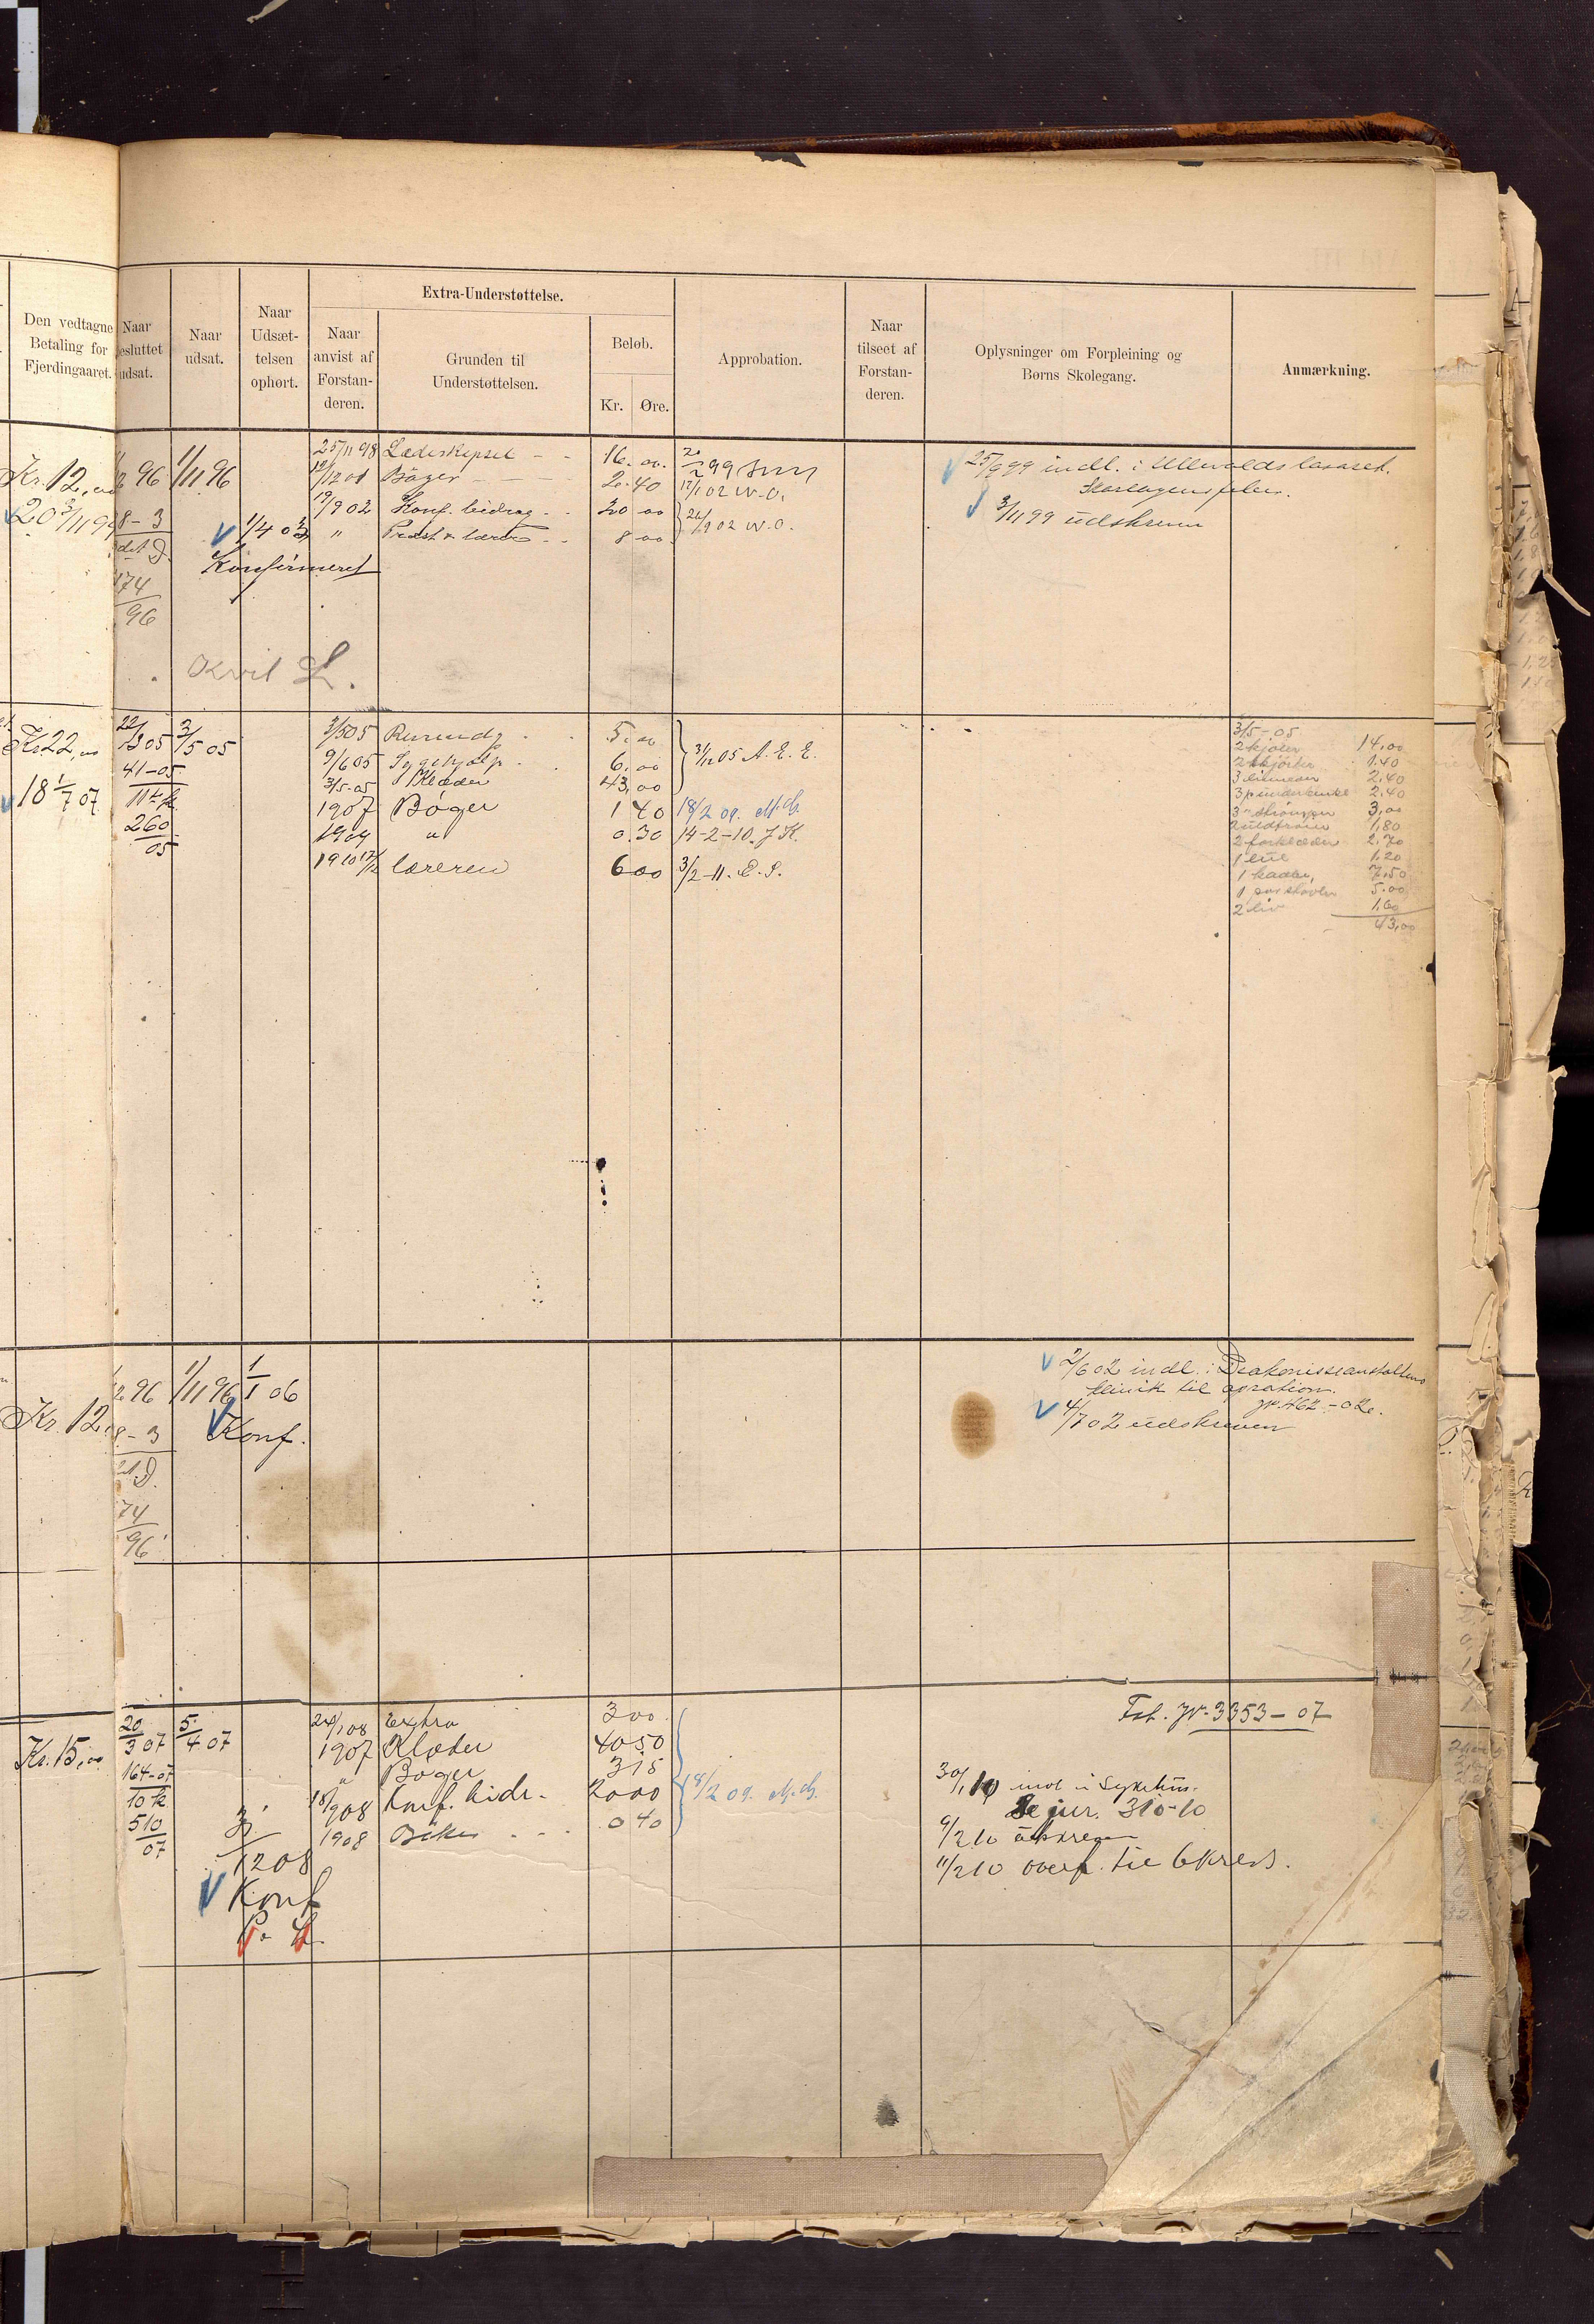 Den vedtagne
Betaling for
Fjerdingaaret.
Naar
esluttet
udsat.
Naar
udsat.
Naar
Udsæt-
telsen
ophørt.
Extra-Understøttelse.
Naar
anvist af
Forstan-
deren.
Grunden til
Understøttelsen.
Beløb.
Kr. Øre.
Approbation.
Naar
tilseet af
Forstan-
deren.
Oplysninger om Forpleining og
Børns Skolegang.
Anmærkning.
Kr. 12,00
20 3/11 99
96 1/11 96
8-3
174
96
1/4 03
Konfirmeret
25/11 98 16.00
Bøger - - - 2.40
19/9 02 Konf. bidrag - - 20 00
" Præst & lærer - - 8 00
2/2 99
17/1 02 W.O.
24/9 02 W.O.
25/9 99 indl. i Ullevolds lasaret.
Skarlagensfeber.
3/11 99 udskreven
Kvit L.
Kr 22,00
18 1/7 07
22/3 05 3/5 05
41-05
11te k
260
05
3/5 05 5.00
9/6 05 Sygehjælp 6.00
3/5-05 Klæder 43,00
1907 Bøger 1 40
1909 " 0.30
1910 17/12 læreren 6 00
31/12 05 A. E. E.
18/2 09. M.G.
14-2-10. J K.
3/2-11. E. S.
3/5-05
2 kjoler 14,00
2 skjorter 1.40
3 linneder 2.40
3 p underbukse 2.40
3 " strømper 3,00
2 uldtrøier 1,80
2 forklæder 2.70
1 lue 1,20
1 kaabe, 7,50
1 par støvler 5.00
2 liv 1,60
43,00
Kr. 12
96 1/11 96 1/1 06
8-3
Konf.
74
96
2/6 02 indl. i Diakonisseanstaltens
klinik til opration.
jr. 462-02.
4/7 02 udskreven
Kr. 15,00
20/3 07 5/4 07
164-07
10 k
510
07
3/12 08
Konf
P. L.
24/1 08 Extra 3 00
1907 Klæder 40 50
" Bøger 3 15
18/9 08 Konf. bidr. - 20 00
1908 Bøker - - - 0 40
18/2 09. M.G.
Fst. Jr. 3353-07
30/1 10 indl i Sykehus.
Se jur. 310-10
9/2 10 utskreven
11/2 10 overf. til 6 kreds.